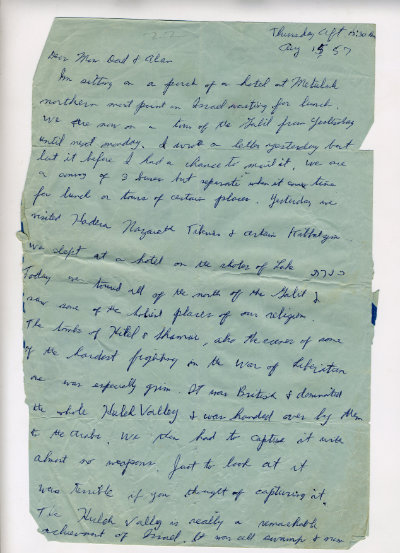 Thursday Aft 12:30
Aug 15 57
Dear Mom Dad & Alan
I'm sitting on a porch of a hotel at Metulah
northern most point in Israel waiting for lunch.
We are now on a tour of the Galil from yesterday
until next monday. I wrote a letter yesterday but
lost it before I had a chance to mail it. We are
a convoy of 3 buses but separate when it comes time
for lunch or tours of certain places. Yesterday we
visited Hadera Nazareth Tiberias & certain Kibbutzim.
We slept at a hotel on the shores of Lake כנרת
Today we toured all of the north of the Galil &
saw some of the holiest places of our religion.
The tombs of Hillel & Shamai, also the scenes of some
of the hardest fighting in the War of Liberation
one was especially grim. It was British & dominated
the whole Huleh Valley & was handed over by them
to the Arabs. We then had to capture it with
almost no weapons. Just to look at it
was terrible if you thought of capturing it.
The Huleh Valley is really a remarkable
achievement of Israel. It was all swamp & now